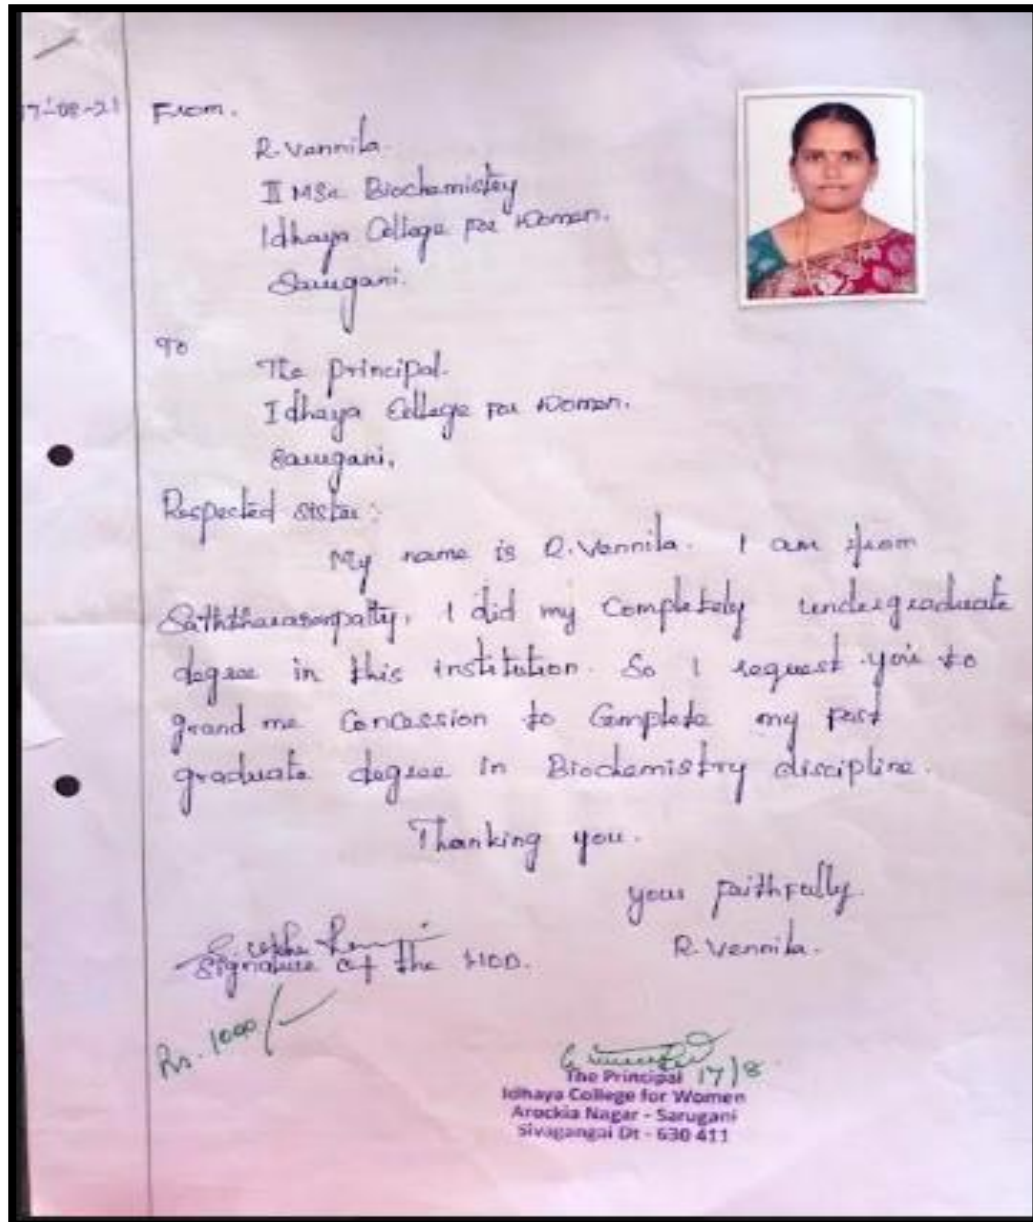 17-08-21 From.
R. Vennila.
II MSc Biochemistry
Idhaya College for Women.
Sarugani.
To
The principal.
Idhaya College for Women.
Sarugani.
Respected sister:
My name is R. Vennila. I am from
I did my Completely undergraduate
degree in this institution. So I request you to
grand me Concession to Complete my Post
graduate degree in Biochemistry discipline.
Thanking you.
your faithfully
R. Vennila.
Signature of the HOD.
Rs. 1000/
17/8
The Principal
Idhaya College for Women
Arockia Nagar - Sarugani
Sivagangai Dt - 630 411